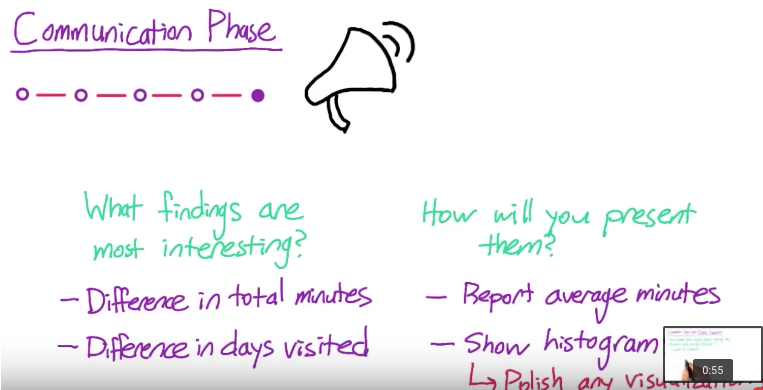 Communication Phase
What findings are
most interesting?
- Difference in total minutes
- Difference in days visited
How will you present
them?
- Report average minutes
- Show histogram
Polish any
0:55